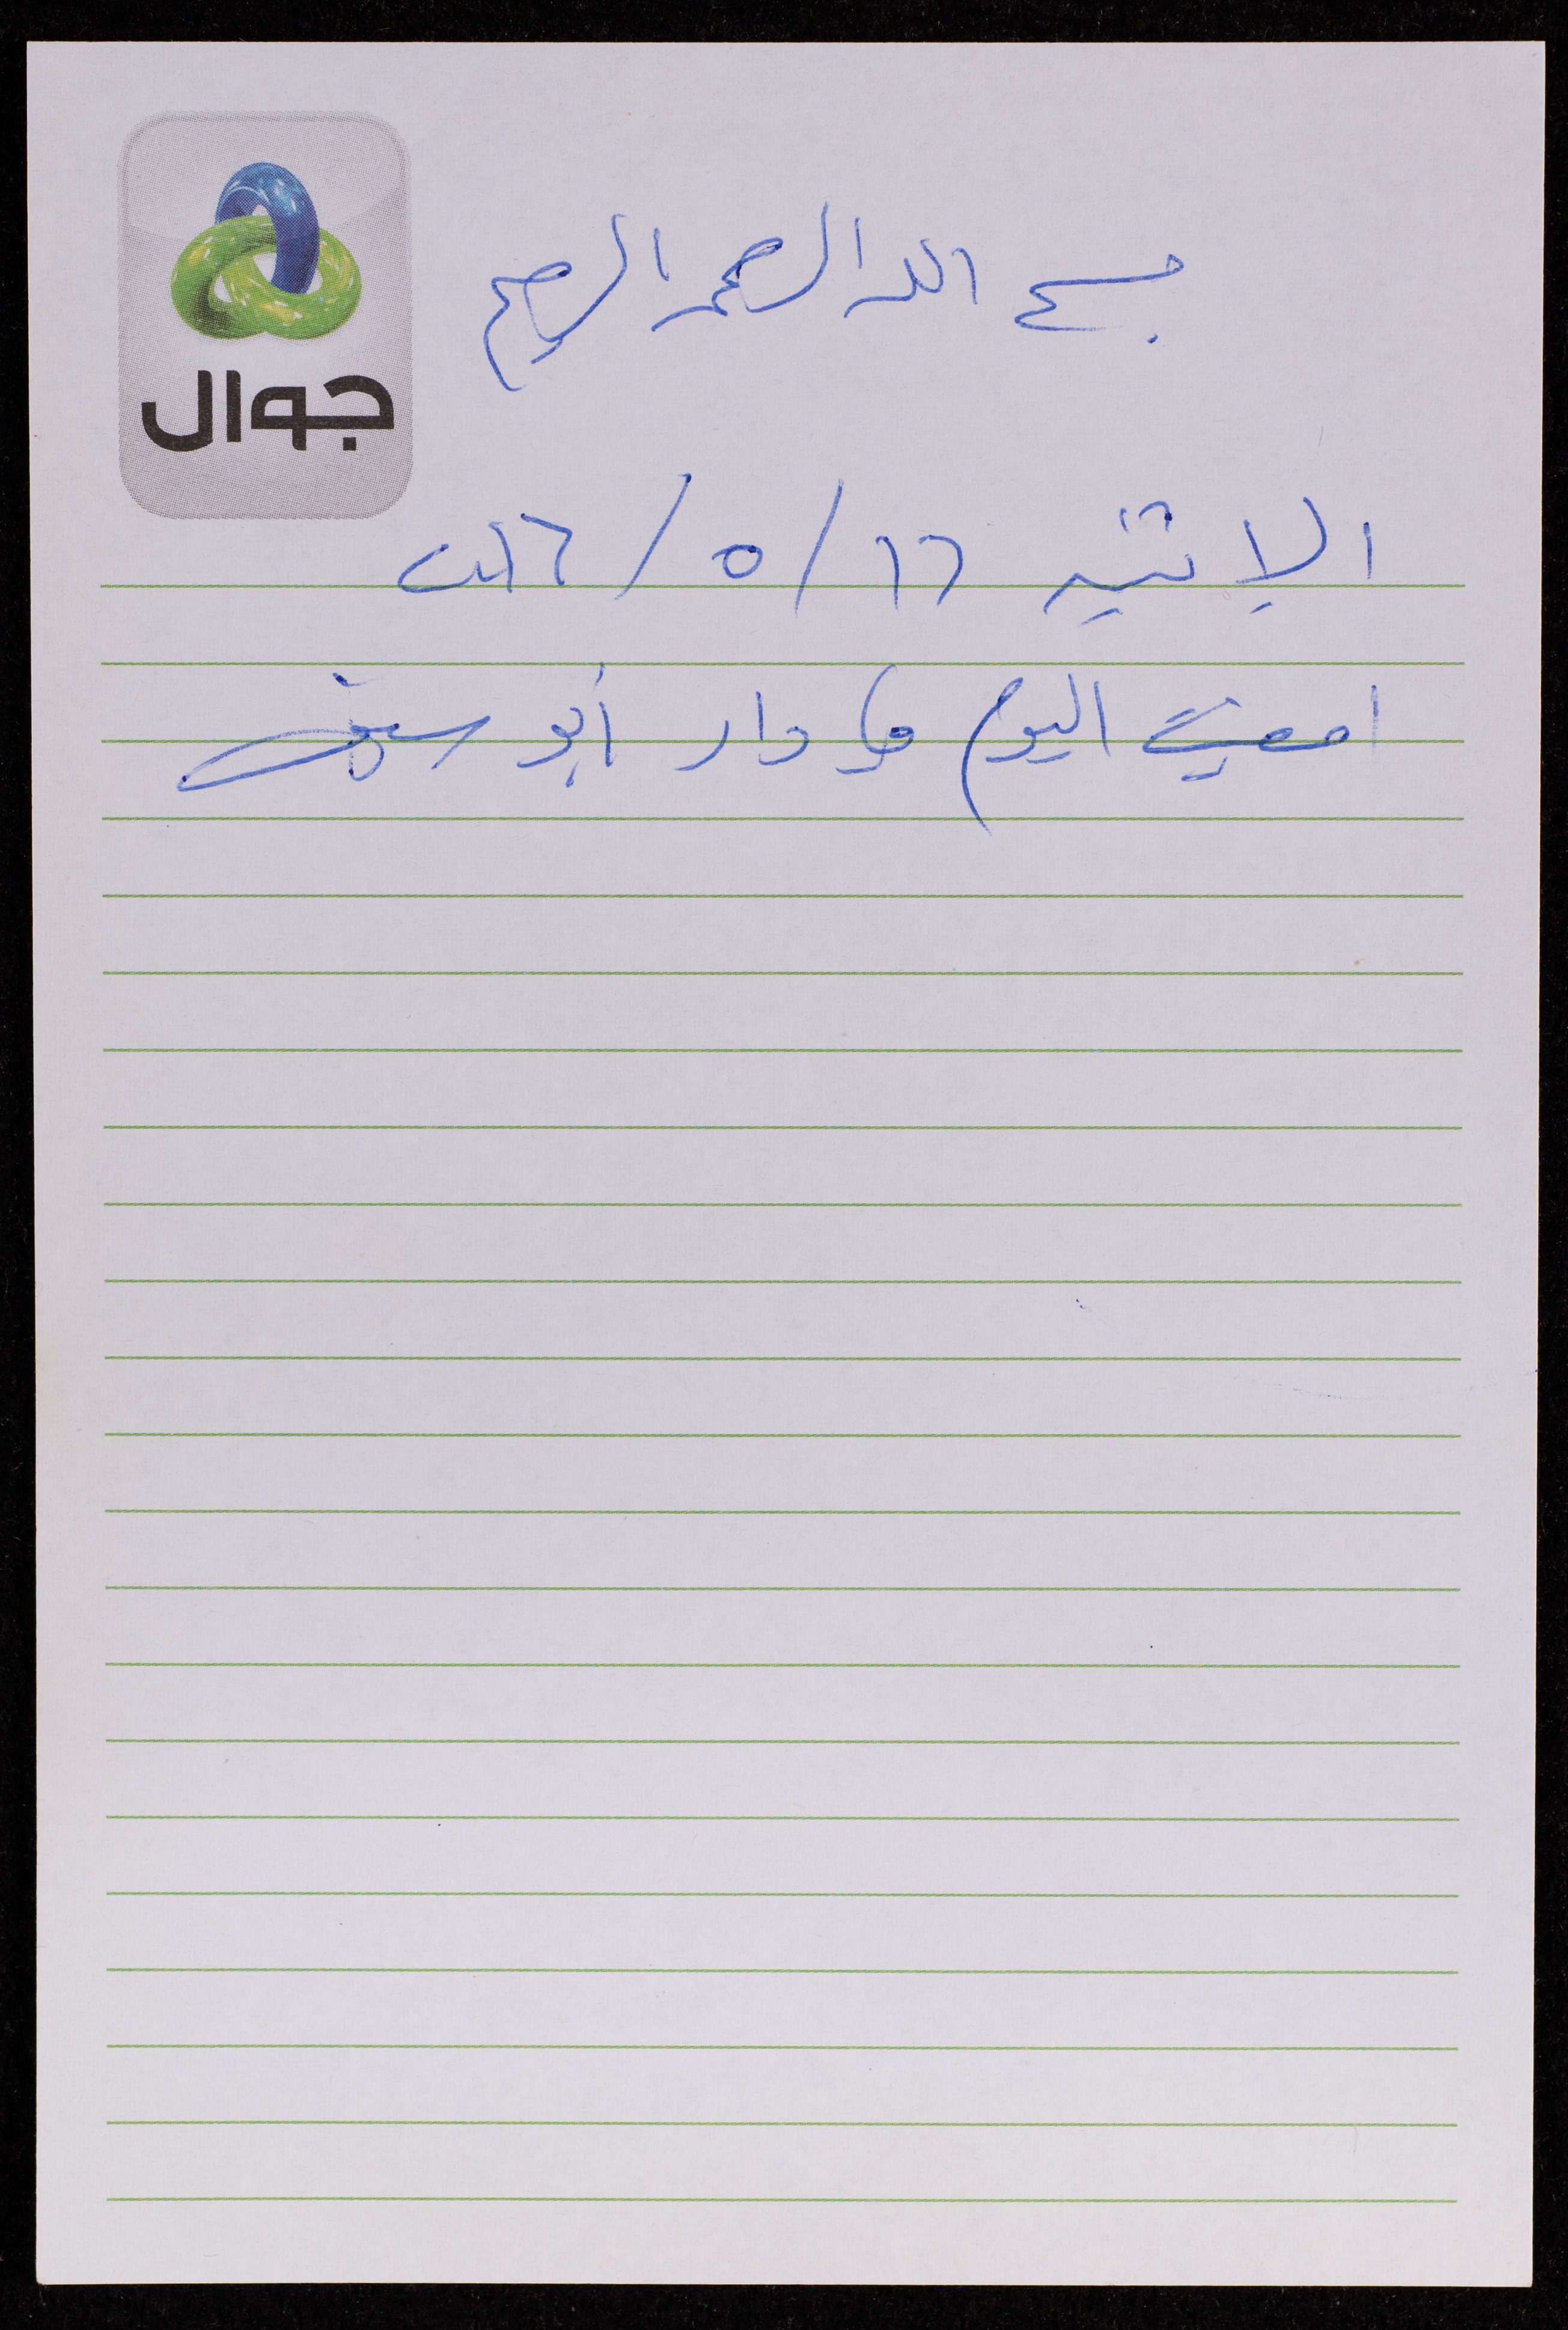 جوال
بسم الله الرحمن الرحيم
الاثنين ١٦/٥/٢٠١٦
امضيت اليوم في دار أبو